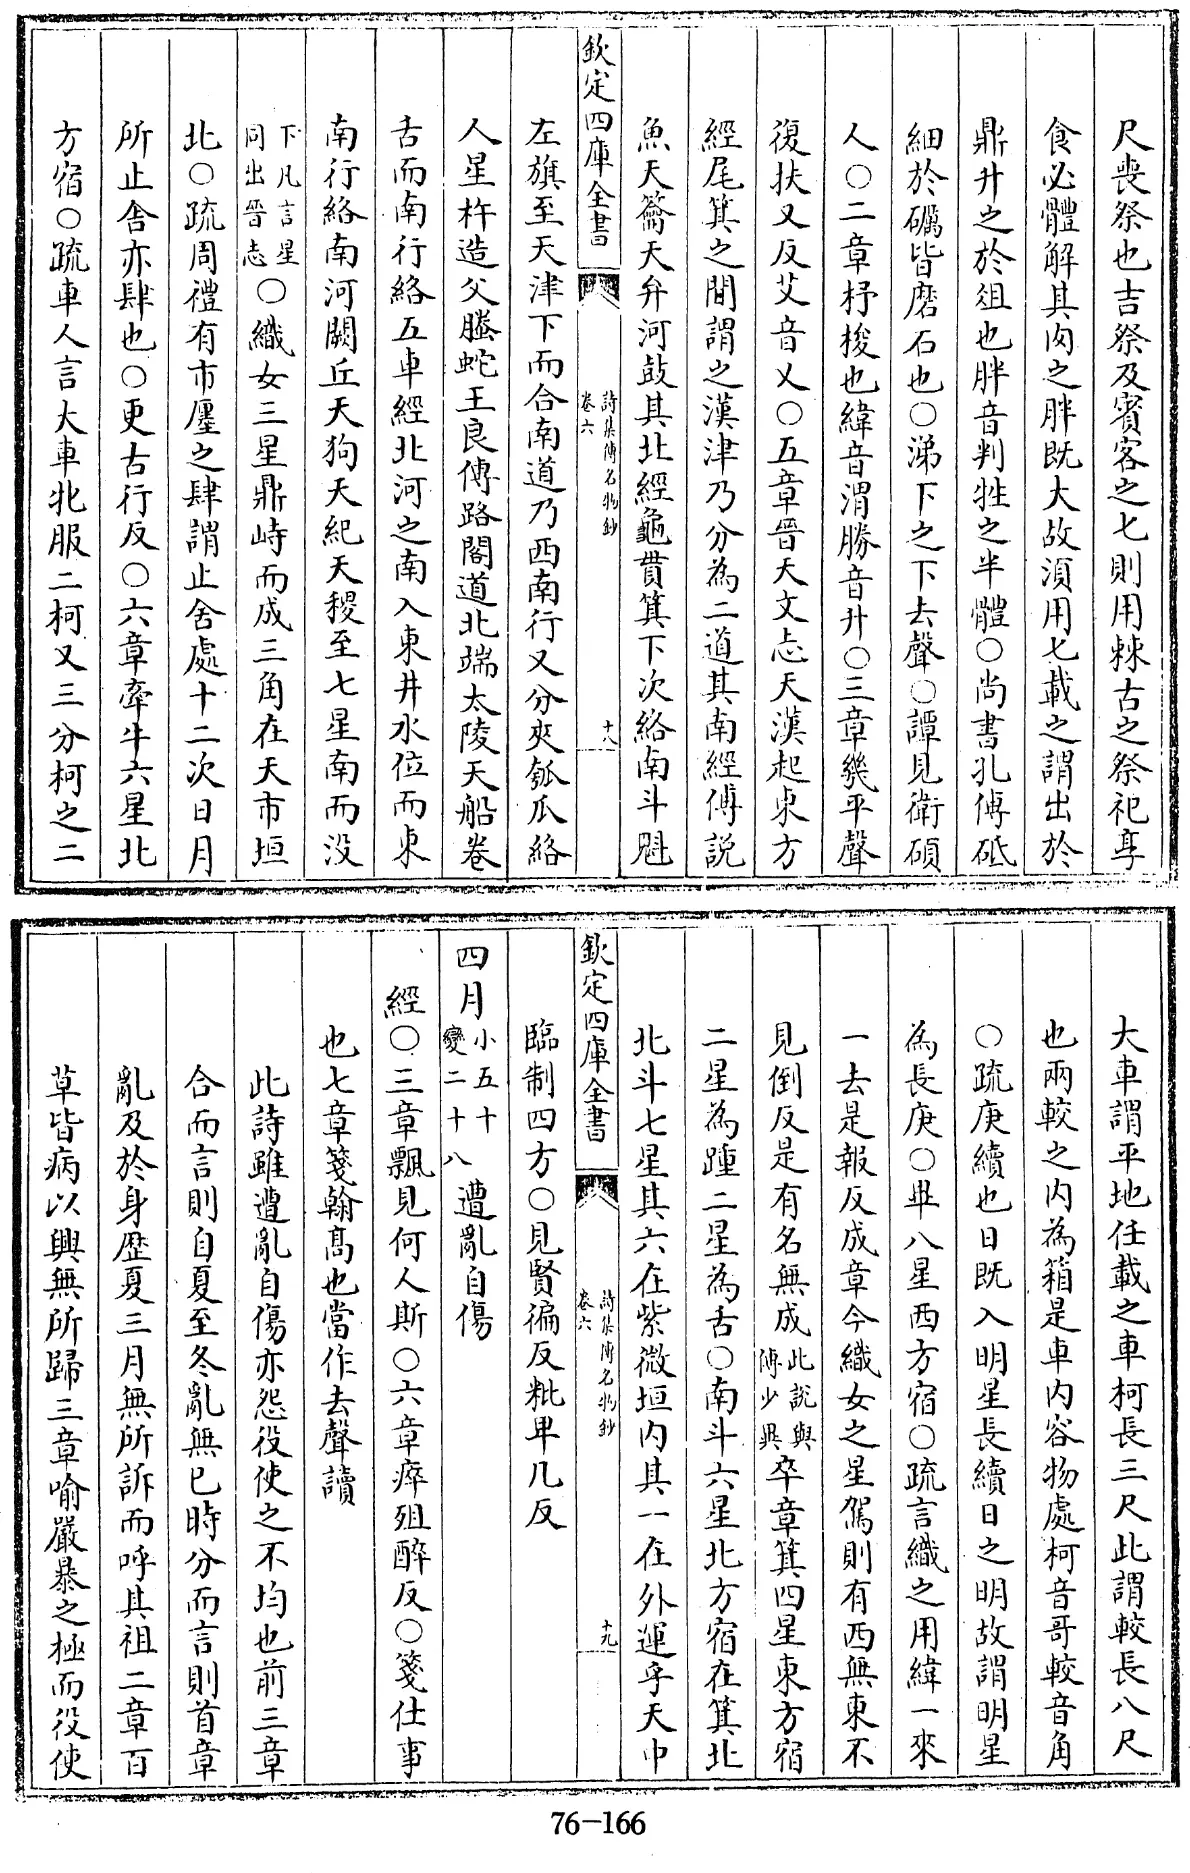 尺喪祭也吉祭及賓客之匕則用棘古之祭祀享
食必體解其肉之胖既大故須用匕載之謂出於
鼎升之於俎也胖音判牲之半體○尚書孔傳砥
細於礪皆磨石也○涕下之下去聲○譚見衛碩
人○二章杼梭也緯音渭勝音升○三章幾平聲
復扶又反艾音乂○五章晉天文志天漢起東方
經尾箕之間謂之漢津乃分為二道其南經傅說
魚天籥天弁河鼓其北經龜貫箕下次絡南斗魁
欽定四庫全書
詩集傳名物鈔
卷六
十八
左旗至天津下而合南道乃西南行又分夾瓠瓜絡
人星杵造父螣蛇王良傅路閣道北端太陵天船卷
舌而南行絡五車經北河之南入東井水位而東
南行絡南河闕丘天狗天紀天稷至七星南而没
下凡言星
同出晉志○織女三星鼎峙而成三角在天市垣
北○疏周禮有市廛之肆謂止舍處十二次日月
所止舍亦肆也○更古行反○六章牽牛六星北
方宿○疏車人言大車牝服二柯又三分柯之二
大車謂平地任載之車柯長三尺此謂較長八尺
也兩較之内為箱是車内容物處柯音哥較音角
○疏庚續也日既入明星長續日之明故謂明星
為長庚○畢八星西方宿○疏言織之用緯一來
一去是報反成章今織女之星駕則有西無東不
見倒反是有名無成此説與
傳少異卒章箕四星東方宿
二星為踵二星為舌○南斗六星北方宿在箕北
北斗七星其六在紫微垣内其一在外運乎天中
欽定四庫全書
詩集傳名物鈔
卷六
十九
臨制四方○見賢徧反粃卑几反
四月小五十
變二十八遭亂自傷
經○三章飄見何人斯○六章瘁殂醉反○箋仕事
也七章箋翰髙也當作去聲讀
此詩雖遭亂自傷亦怨役使之不均也前三章
合而言則自夏至冬亂無已時分而言則首章
亂及於身歴夏三月無所訴而呼其祖二章百
草皆病以興無所歸三章喻嚴暴之極而役使
76-166